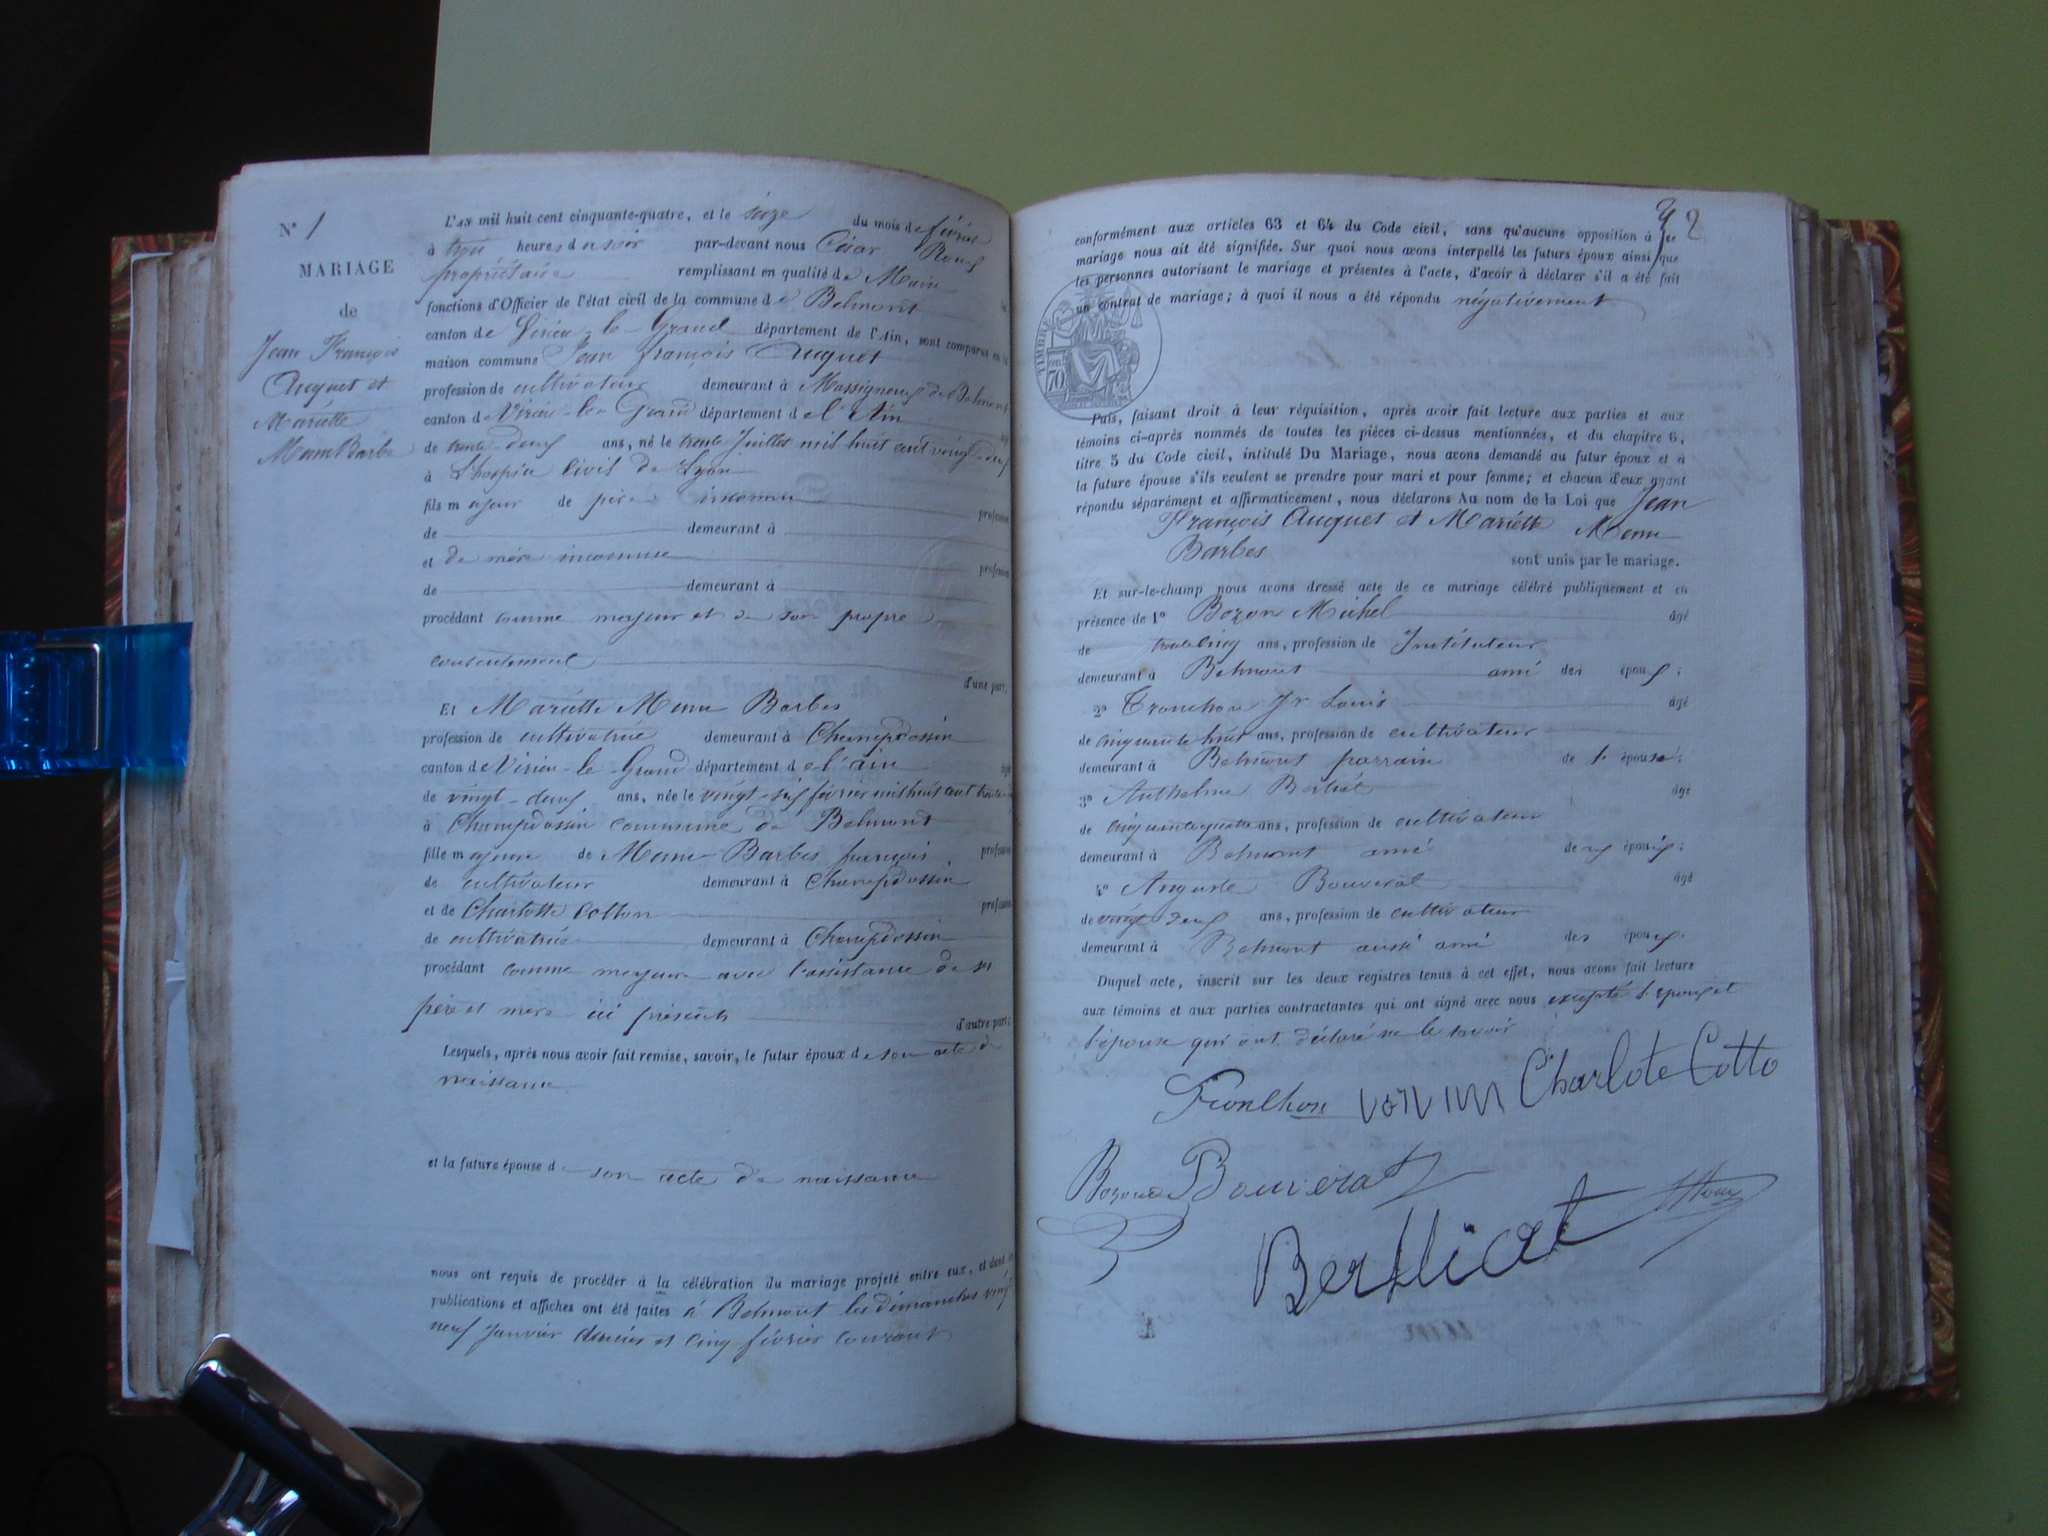 N° 1
MARIAGE
de
Jean François
Auquet et
Mariette
Menu Barbe
L'AN mil huit cent cinquante-quatre, et le seize du mois de février
à trois heures du soir par-devant nous César Roux
propriétaire remplissant en qualité de Maire
fonctions d'Officier de l'état civil de la commune de Belmont
canton de Virieu-le-Grand département de l'Ain, sont comparus en la
maison commune Jean françois Auquet
profession de cultivateur demeurant à Massigneux de Belmont
canton de Virieu-le-Grand département de l'Ain
de trente-deux ans, né le trente Juillet mil huit cent vingt-deux
à L'hospice Civil de Lyon
fils majeur de père inconnu
profession
de demeurant à
et de mère inconnue
profession
de demeurant à
procédant comme majeur et de son propre
consentement
d'une part,
Et Mariette Menu Barbes
profession de cultivatrice demeurant à Champdossin
canton de Virieu-le-Grand département de l'ain
de vingt-deux ans, née le vingt-six février mil huit cent trente
à Champdossin commune de Belmont
fille majeure de Menu-Barbes françois, profession
de cultivateur demeurant à Champdossin
et de Charlotte Cotton profession
de cultivatrice demeurant à Champdossin
procédant comme majeure avec l'assistance de ses
père et mère ici présents d'autre part;
Lesquels, après nous avoir fait remise, savoir, le futur époux de son acte de
naissance
et la future épouse de son acte de naissance
nous ont requis de procéder à la célébration du mariage projeté entre eux, et dont
publications et affiches ont été faites à Belmont les dimanches vingt
neuf Janvier dernier et cinq février courant
2
conformément aux articles 63 et 64 du Code civil, sans qu'aucune opposition à ce
mariage nous ait été signifiée. Sur quoi nous avons interpellé les futurs époux ainsi que
les personnes autorisant le mariage et présentes à l'acte, d'avoir à déclarer s'il a été fait
un contrat de mariage; à quoi il nous a été répondu négativement
TIMBRE
70
Puis, faisant droit à leur réquisition, après avoir fait lecture aux parties et aux
témoins ci-après nommés de toutes les pièces ci-dessus mentionnées, et du chapitre 6,
titre 5 du Code civil, intitulé Du Mariage, nous avons demandé au futur époux et à
la future épouse s'ils veulent se prendre pour mari et pour femme; et chacun d'eux ayant
répondu séparément et affirmativement, nous déclarons Au nom de la Loi que Jean
François Auquet et Mariette Menu
Barbes
sont unis par le mariage.
Et sur-le-champ nous avons dressé acte de ce mariage célébré publiquement et en
présence de 1° Bozon Michel âgé
de ans, profession de Instituteur
demeurant à Belmont ami des époux;
2° Tronchon Jn Louis âgé
de cinquante huit ans, profession de cultivateur
demeurant à Belmont parrain de l'épouse;
3° Anthelme Berliat âgé
de cinquante quatre ans, profession de cultivateur
demeurant à Belmont ami des époux;
4° Auguste Bouverat âgé
de vingt deux ans, profession de cultivateur
demeurant à Belmont aussi ami des époux.
Duquel acte, inscrit sur les deux registres tenus à cet effet, nous avons fait lecture
aux témoins et aux parties contractantes qui ont signé avec nous excepté l'époux et
l'épouse qui ont déclaré ne le savoir
Tronchon Charlote Cotto
Bozon Bouverat
Berlliat Roux